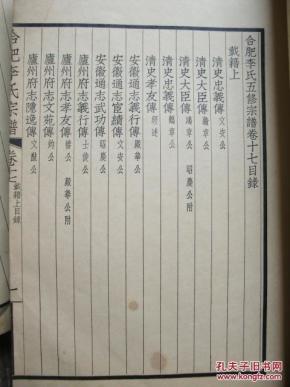 合肥李氏五修宗譜卷十七目錄
載籍上
清史忠義傳 文安公
清史大臣傳 瀚章公
清史大臣傳 鴻章公 昭慶公附
清史忠義傳 鶴章公
清史孝友傳
安徽通志義行傳 殿華公
安徽通志宦績傳 文安公
安徽通志武功傳 昭慶公
廬州府志義行傳
廬州府志孝友傳 殿華公附
廬州府志文苑傳
廬州府志隱逸傳
合肥李氏宗譜
載籍上目錄
一
孔夫子旧书网